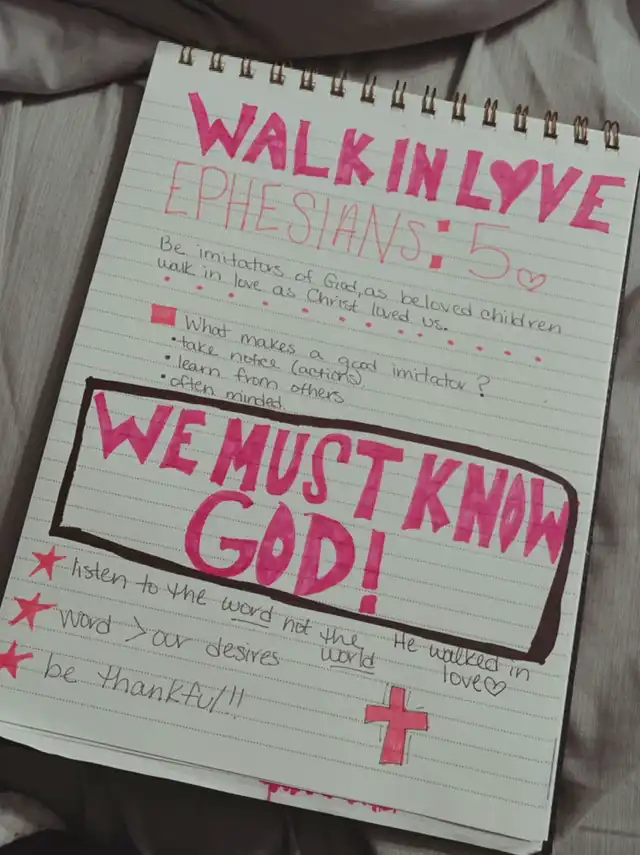 WALK IN LOVE
EPHESIANS: 5
Be imitators of God, as beloved children
walk in love as Christ loved us.
What makes a good imitator?
• take notice (actions)
• learn from others
• often minded.
WE MUST KNOW
GOD!
listen to the word not the world
word > our desires
be thankful!!
He walked in
love